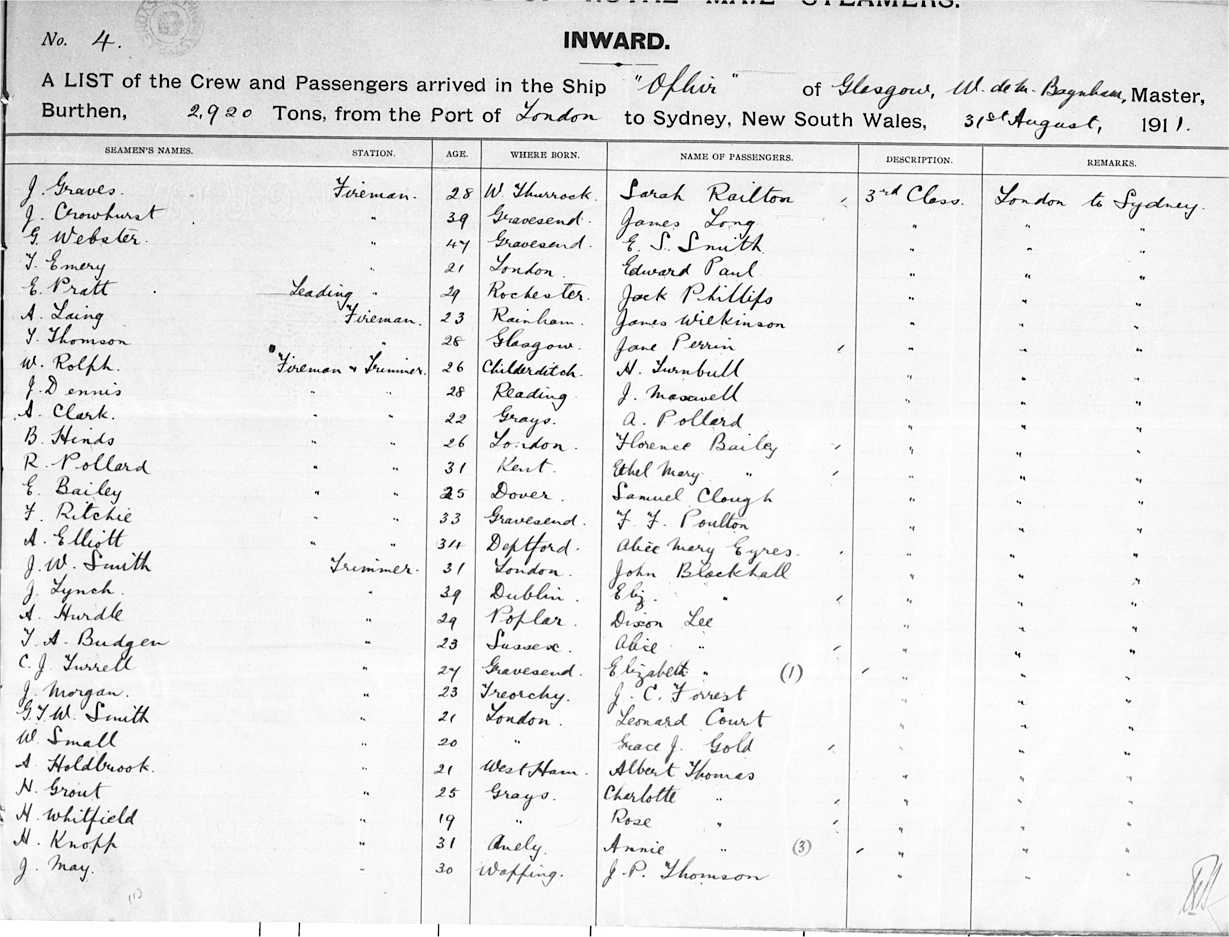 OF ROYAL MAIL STEAMERS.
No. 4.
INWARD.
A LIST of the Crew and Passengers arrived in the Ship "Ophir" of Glasgow, W. de M. Baynham, Master,
Burthen, 2,920 Tons, from the Port of London to Sydney, New South Wales, 31st August, 1911.
SEAMEN'S NAMES. STATION. AGE. WHERE BORN. NAME OF PASSENGERS. DESCRIPTION. REMARKS.
J. Graves. Fireman. 28 W. Thurrock. Sarah Railton 3rd Class. London to Sydney.
J. Crowhurst " 39 Gravesend. James Long " " "
G. Webster. " 47 Gravesend. E. S. Smith " " "
T. Emery " 21 London. Edward Paul " " "
E. Pratt Leading " 29 Rochester. Jack Phillips " " "
A. Laing Fireman. 23 Rainham. James Wilkinson " " "
T. Thomson " 28 Glasgow. Jane Perrin " " "
W. Rolph. Fireman & Trimmer. 26 Childerditch. H. Turnbull " " "
J. Dennis " " 28 Reading J. Maxwell " " "
A. Clark. " " 22 Grays. A. Pollard " " "
B. Hinds " " 26 London. Florence Bailey " " "
R. Pollard " " 31 Kent. Ethel Mary " " " "
E. Bailey " " 25 Dover. Samuel Clough " " "
F. Ritchie " " 33 Gravesend. F. F. Poulton " " "
A. Elliott " " 34 Deptford. Alice Mary Eyres. " " "
J. W. Smith Trimmer. 31 London. John Blackhall " " "
J. Lynch. " 39 Dublin. Eliz. " " " "
A. Hurdle " 29 Poplar. Dixon Lee " " "
T. A. Budgen " 23 Sussex. Alice " " " "
C. J. Turrell " 27 Gravesend. Elizabeth " (1) " " "
J. Morgan. " 23 Treorchy. J. C. Forrest " " "
G. T. W. Smith " 21 London. Leonard Court " " "
W. Small " 20 " Grace J. Gold " " "
A. Holdbrook. " 21 West Ham. Albert Thomas " " "
H. Grout " 25 Grays. Charlotte " " " "
H. Whitfield " 19 " Rose " " " "
H. Knopp " 31 Avely. Annie " (3) " " "
J. May. " 30 Wapping. J. P. Thomson " " "